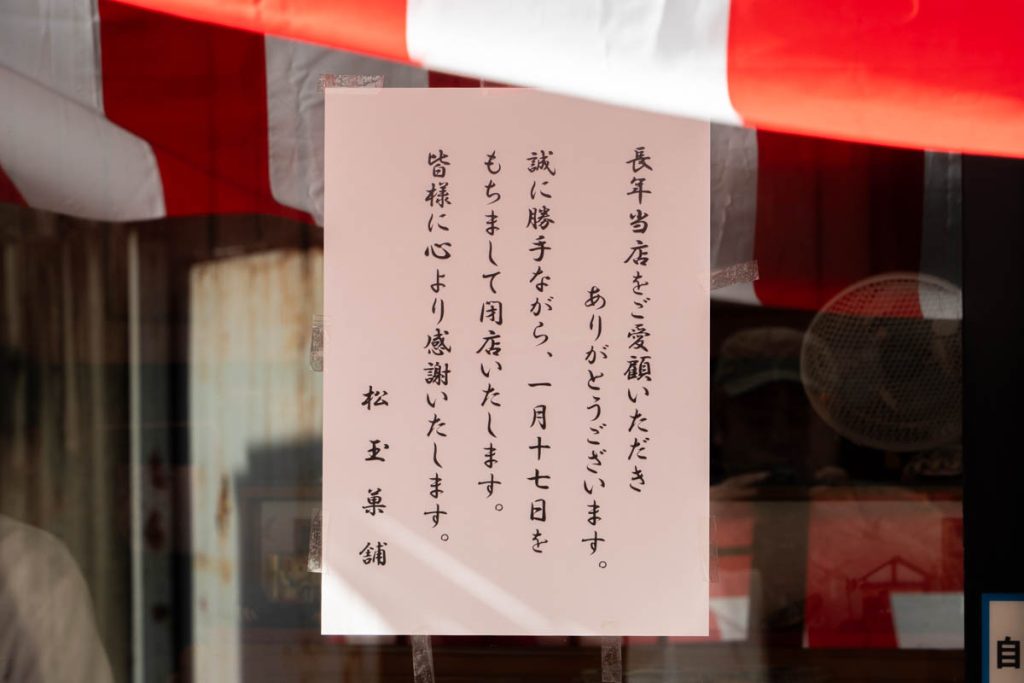 長年当店をご愛顧いただき
ありがとうございます。
誠に勝手ながら、一月十七日を
もちまして閉店いたします。
皆様に心より感謝いたします。
松玉菓舗
自